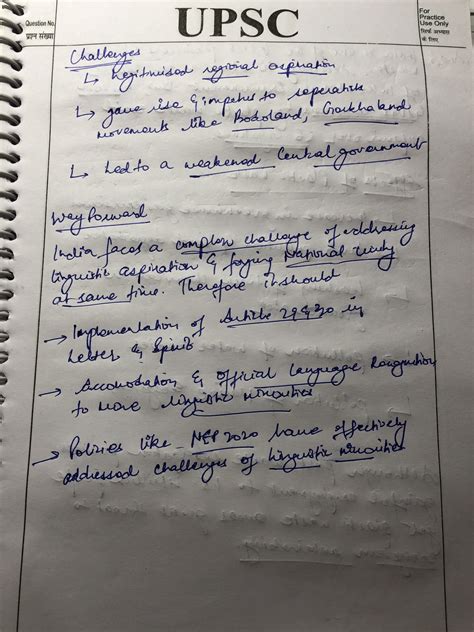 Question No.
प्रश्न संख्या
UPSC
For
Practice
Use Only
सिर्फ अभ्यास
के लिए
Challenges
↳ Legitimised regional aspiration
↳ gave rise & impetus to seperatist
movements like Bodoland, Gorkhaland
↳ Led to a weakened Central government
Way forward
India faces a complex challenge of addressing
linguistic aspiration & forging National Unity
at same time. Therefore it should
→ Implementation of Article 29 & 30 in
Letter & Spirit
→ Accomodation & official language Recognition
to more linguistic minorities
→ Policies like NEP 2020 have effectively
addressed challenges of linguistic minorities